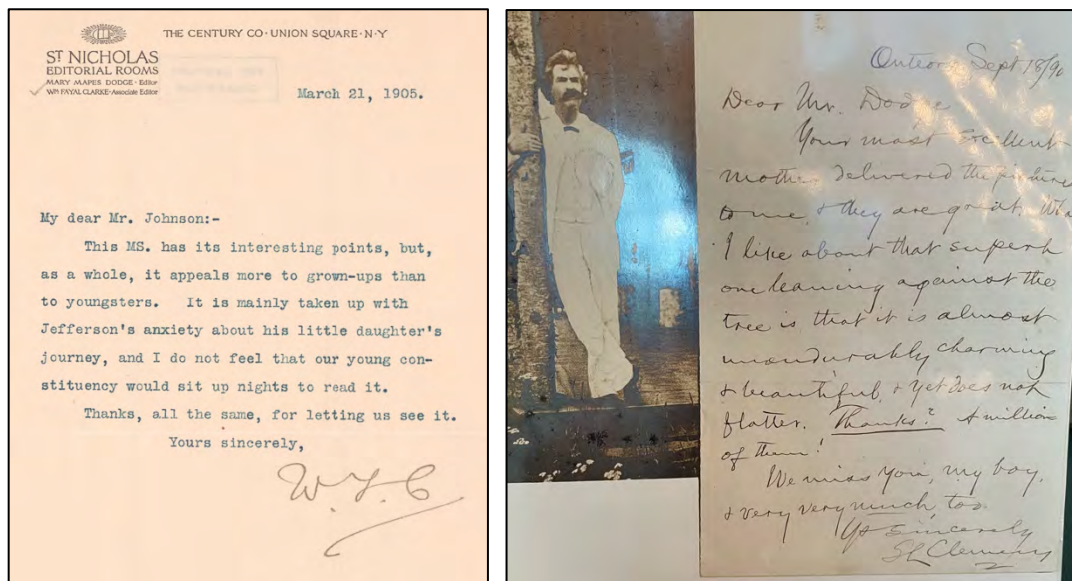 THE CENTURY CO · UNION SQUARE · N · Y
ST NICHOLAS
EDITORIAL ROOMS
MARY MAPES DODGE · Editor
WM FAYAL CLARKE · Associate Editor
March 21, 1905.
My dear Mr. Johnson:-
This MS. has its interesting points, but,
as a whole, it appeals more to grown-ups than
to youngsters. It is mainly taken up with
Jefferson's anxiety about his little daughter's
journey, and I do not feel that our young con-
stituency would sit up nights to read it.
Thanks, all the same, for letting us see it.
Yours sincerely,
W. F. C
Onteora, Sept 18/90
Dear Mr. Dodge
Your most excellent
mother delivered the pictures
to me, & they are great. What
I like about that superb
one leaning against the
tree is that it is almost
unendurably charming
& beautiful, & yet does not
flatter. Thanks? A million
of them!
We miss you, my boy,
& very very much, too.
Ys sincerely
SL Clemens